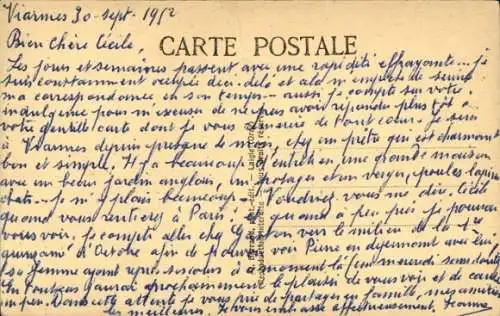 Viarmes 30 - sept - 1952
Bien chère Cécile,
CARTE POSTALE
Les jours et semaines passent avec une rapidité effrayante... je
suis constamment occupée deci-delà et cela m'empêche de tenir
ma correspondance en son temps - aussi je compte sur votre
indulgence pour m'excuser de ne pas avoir répondu plus tôt à
votre gentille carte dont je vous remercie de tout coeur. Je suis
à Viarmes depuis presque le mois, chez un prêtre qui est charmant
bon et simple. Il y a beaucoup d'entretien, une grande maison
avec un beau jardin anglais, un potager et un verger, poules lapins
chats - je m'y plais beaucoup - Voudriez-vous me dire, Cécile
quand vous rentrerez à Paris, quand à peu près je pourrai
vous voir, je compte aller chez vers le milieu de la 1ère
quinzaine d'Octobre afin de pouvoir voir Pierre en déjeunant avec lui
sa femme ayant repris ses cours à ce moment-là (un mercredi sans doute)
En tout cas j'aurai prochainement le plaisir de vous voir et de causer
un peu. Dans cette attente je vous prie de partager en famille, mes amitiés
les meilleures. Je vous embrasse affectueusement, Jeanne